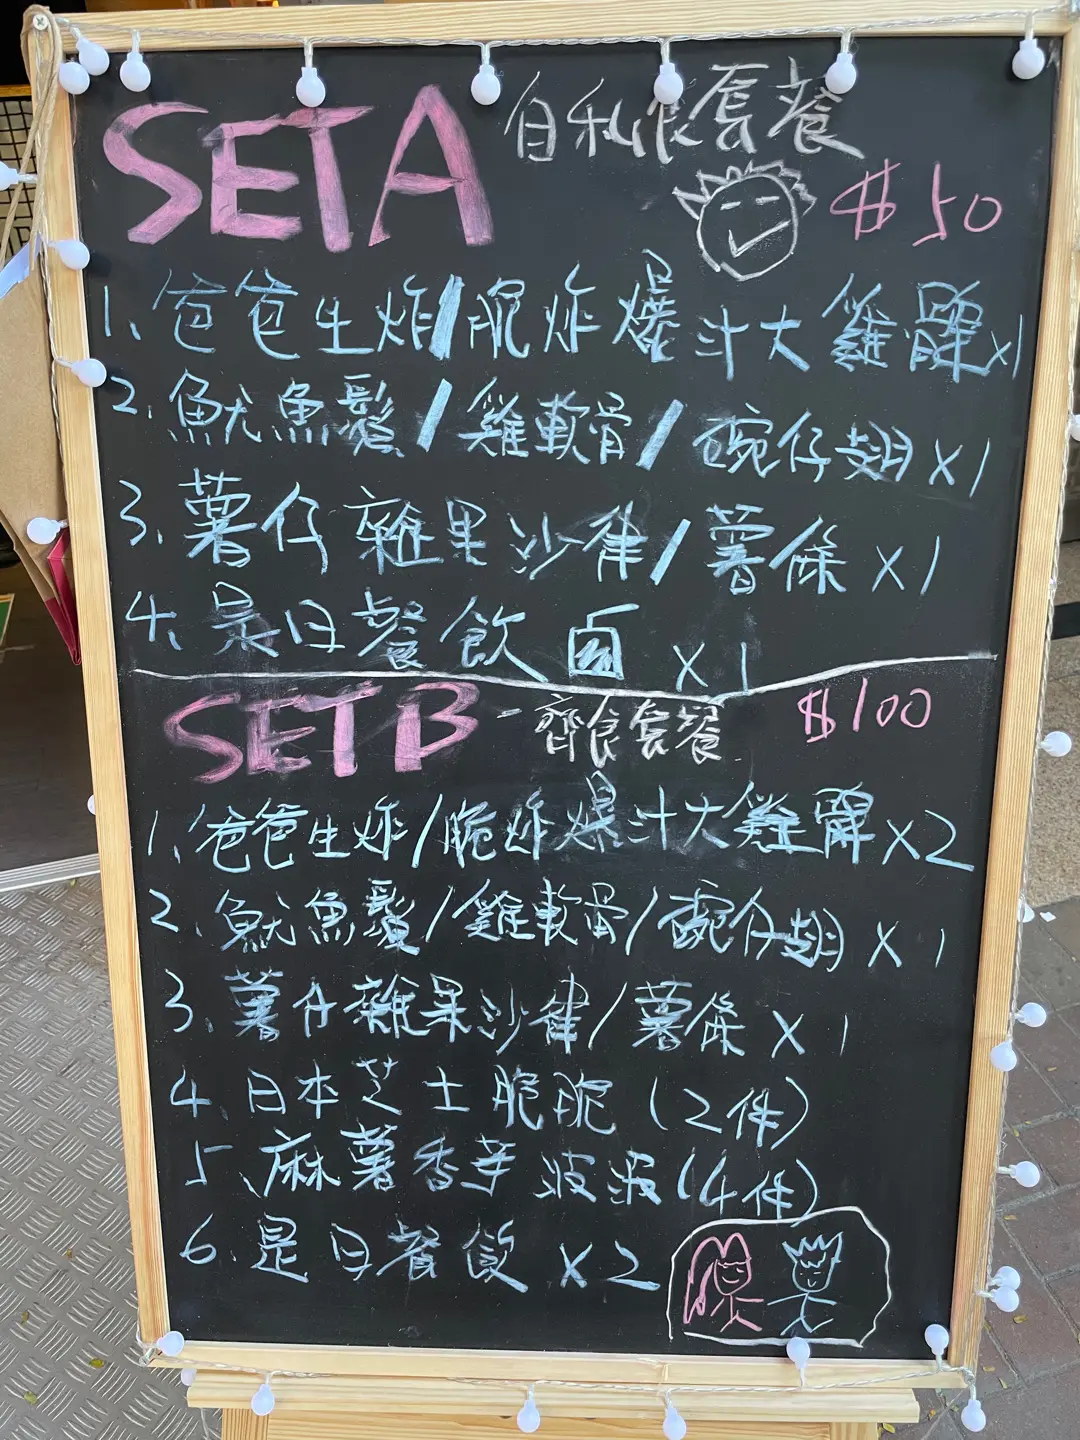 SET A 自私食套餐
$50
1、爸爸生炸/脆炸爆汁大雞髀x1
2、魷魚鬚/雞軟骨/碗仔翅x1
3、薯仔雜果沙律/薯條x1
4、是日餐飲 x1
SET B - 齊食套餐 $100
1、爸爸生炸/脆炸爆汁大雞髀x2
2、魷魚鬚/雞軟骨/碗仔翅x1
3、薯仔雜果沙律/薯條x1
4、日本芝士脆脆(2件)
5、麻薯香芋波波(4件)
6、是日餐飲x2